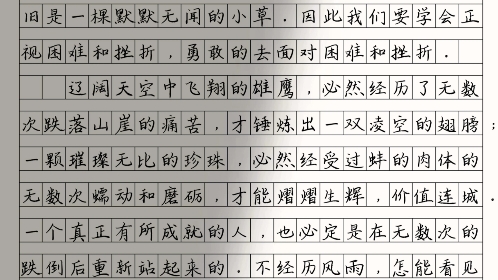 旧是一棵默默无闻的小草．因此我们要学会正
视困难和挫折，勇敢的去面对困难和挫折．
辽阔天空中飞翔的雄鹰，必然经历了无数
次跌落山崖的痛苦，才锤炼出一双凌空的翅膀；
一颗璀璨无比的珍珠，必然经受过蚌的肉体的
无数次蠕动和磨砺，才能熠熠生辉，价值连城．
一个真正有所成就的人，也必定是在无数次的
跌倒后重新站起来的．不经历风雨，怎能看见